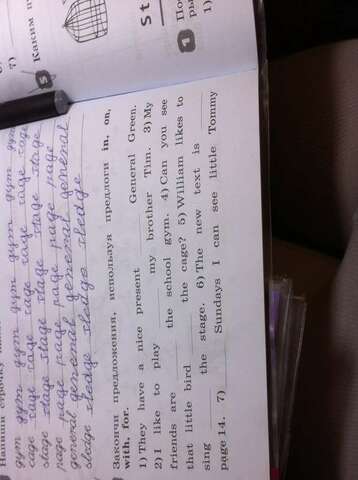 Напиши строчку
gym gym gym gym gym gym
cage cage cage cage cage cage
stage stage stage stage stage
page page page page page page
general general general general
sledge sledge sledge
Закончи предложения, используя предлоги in, on,
with, for.
1) They have a nice present ______ General Green.
2) I like to play ______ my brother Tim. 3) My
friends are ______ the school gym. 4) Can you see
that little bird ______ the cage? 5) William likes to
sing ______ the stage. 6) The new text is ______
page 14. 7) ______ Sundays I can see little Tommy
7)
5 Каким
St
1 По
ры
1)